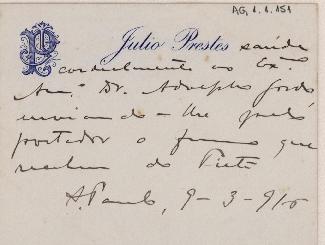 AG, 1.1.151
Julio Prestes saúda
cordealmente ao Exmo
Amº Dr. Adolpho Gordo
enviando-lhe pelo
portador o fumo que
recebeu do Tieté
S. Paulo, 9-3-916